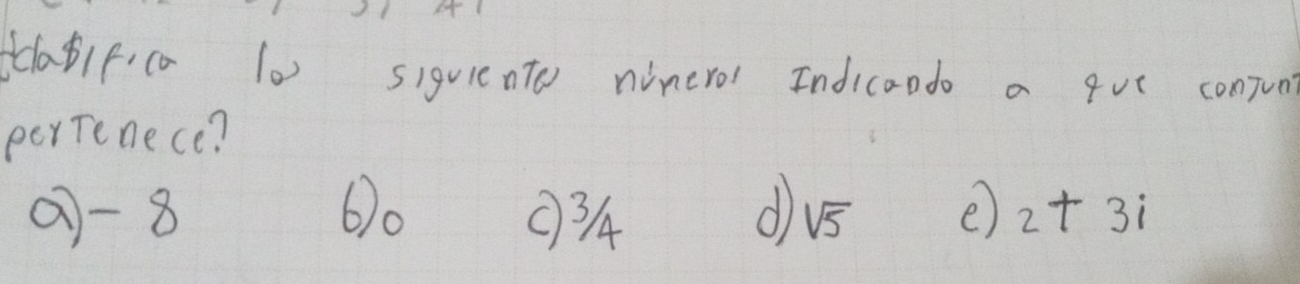 clasifica los siguientes números Indicando a que conjunt
pertenece?
a) - 8 b) 0 c) 3/4 d) √5 e) 2 + 3i